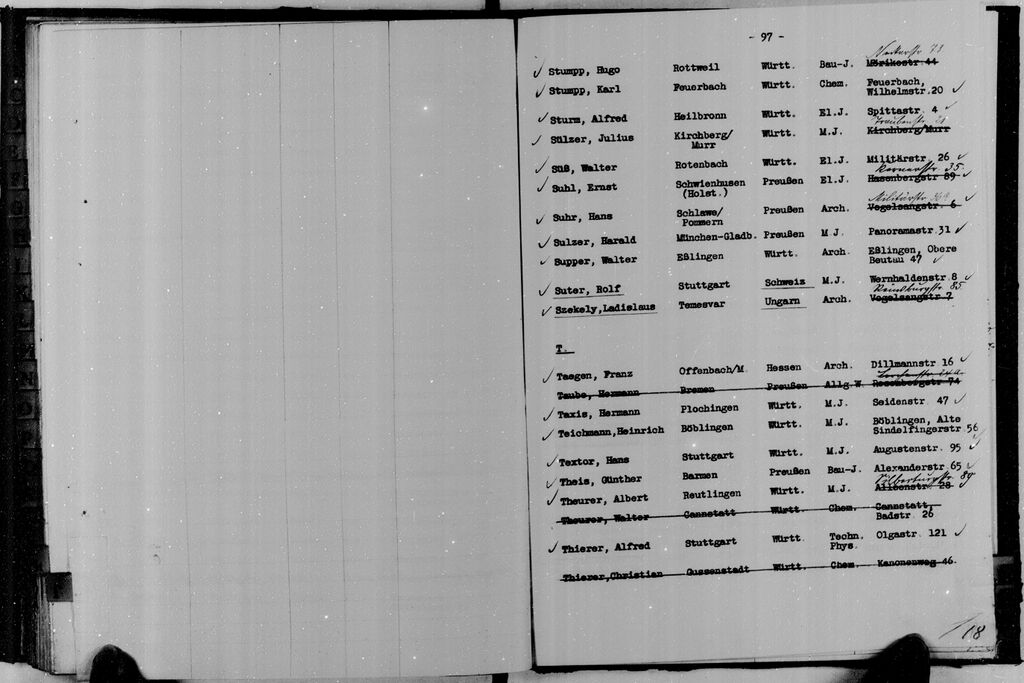 - 97 -
Neckarstr 73
✓ Stumpp, Hugo Rottweil Württ. Bau-J. Mörikestr 44
✓ Stumpp, Karl Feuerbach Württ. Chem. Feuerbach,
Wilhelmstr.20 ✓
✓ Sturm, Alfred Heilbronn Württ. El.J. Spittastr. 4 ✓
Traubenstr. 21
✓ Sülzer, Julius Kirchberg/ Württ. M.J. Kirchberg/Murr
Murr
✓ Süß, Walter Rotenbach Württ. El.J. Militärstr. 26 ✓
Kernerstr. 35.
✓ Suhl, Ernst Schwienhusen Preußen El.J. Hasenbergstr 89 ✓
(Holst.)
Militärstr
✓ Suhr, Hans Schlawe/ Preußen Arch. Vogelsangstr. 6
Pommern
✓ Sulzer, Harald München-Gladb. Preußen M.J. Panoramastr.31 ✓
✓ Supper, Walter Eßlingen Württ. Arch. Eßlingen, Obere
Beutau 47 ✓
✓ Suter, Rolf Stuttgart Schweiz M.J. Wernhaldenstr.8 ✓
Reinsburgstr 85
✓ Szekely,Ladislaus Temesvar Ungarn Arch. Vogelsangstr 7
T.
✓ Taegen, Franz Offenbach/M. Hessen Arch. Dillmannstr 16 ✓
Taube, Hermann Bremen Preußen Allg.W. Rosenbergstr 74
✓ Taxis, Hermann Plochingen Württ. M.J. Seidenstr. 47 ✓
✓ Teichmann,Heinrich Böblingen Württ. M.J. Böblingen, Alte
Sindelfingerstr 56
✓ Textor, Hans Stuttgart Württ. M.J. Augustenstr. 95 ✓
✓ Theis, Günther Barmen Preußen Bau-J. Alexanderstr 65 ✓
Silberburgstr 89
✓ Theurer, Albert Reutlingen Württ. M.J. Alleenstr. 28
Theurer, Walter Cannstatt Württ. Chem. Cannstatt,
Badstr. 26
✓ Thierer, Alfred Stuttgart Württ. Techn. Olgastr. 121 ✓
Phys.
Thierer,Christian Gussenstadt Württ. Chem. Kanonenweg 46.
18